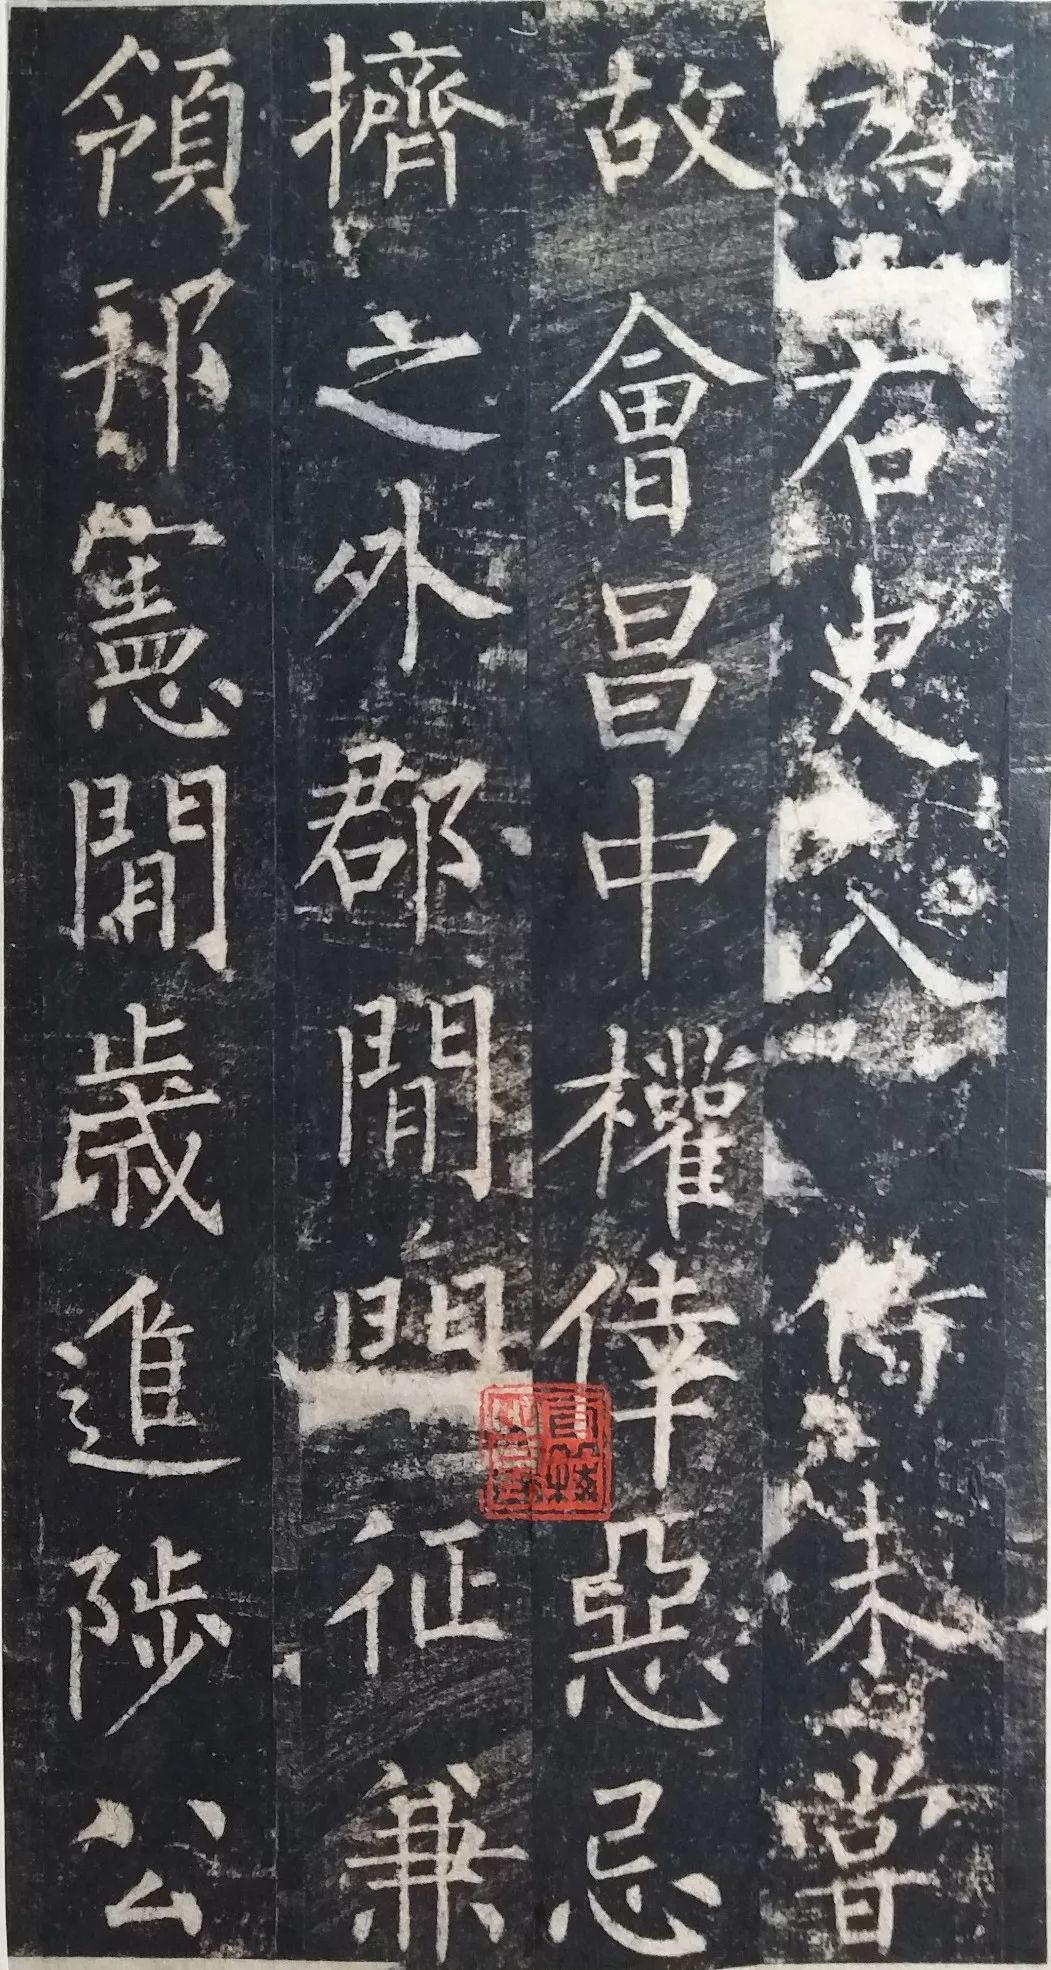 為右史入未嘗
故會昌中權倖惡忌
擠之外郡間征兼
領邦憲間歲進陟公